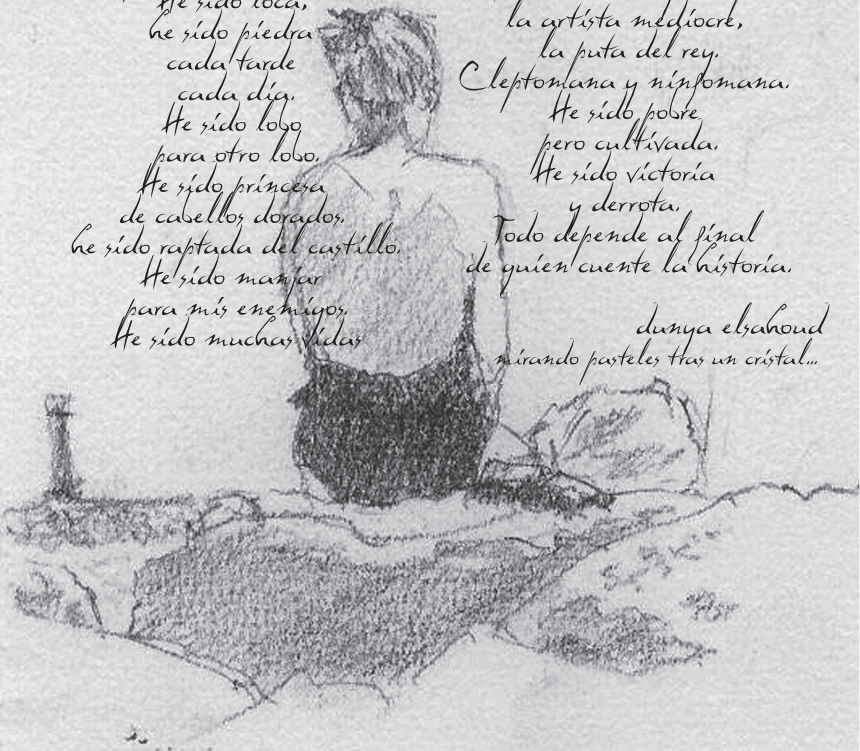 He sido loca,
he sido piedra
cada tarde
cada día.
He sido lobo
para otro lobo.
He sido princesa
de cabellos dorados.
he sido raptada del castillo.
He sido manjar
para mis enemigos.
He sido muchas vidas
la artista mediocre,
la puta del rey.
Cleptomana y ninfomana.
He sido pobre
pero cultivada.
He sido victoria
y derrota.
Todo depende al final
de quien cuente la historia.
dunya elsahoud
mirando pasteles tras un cristal...